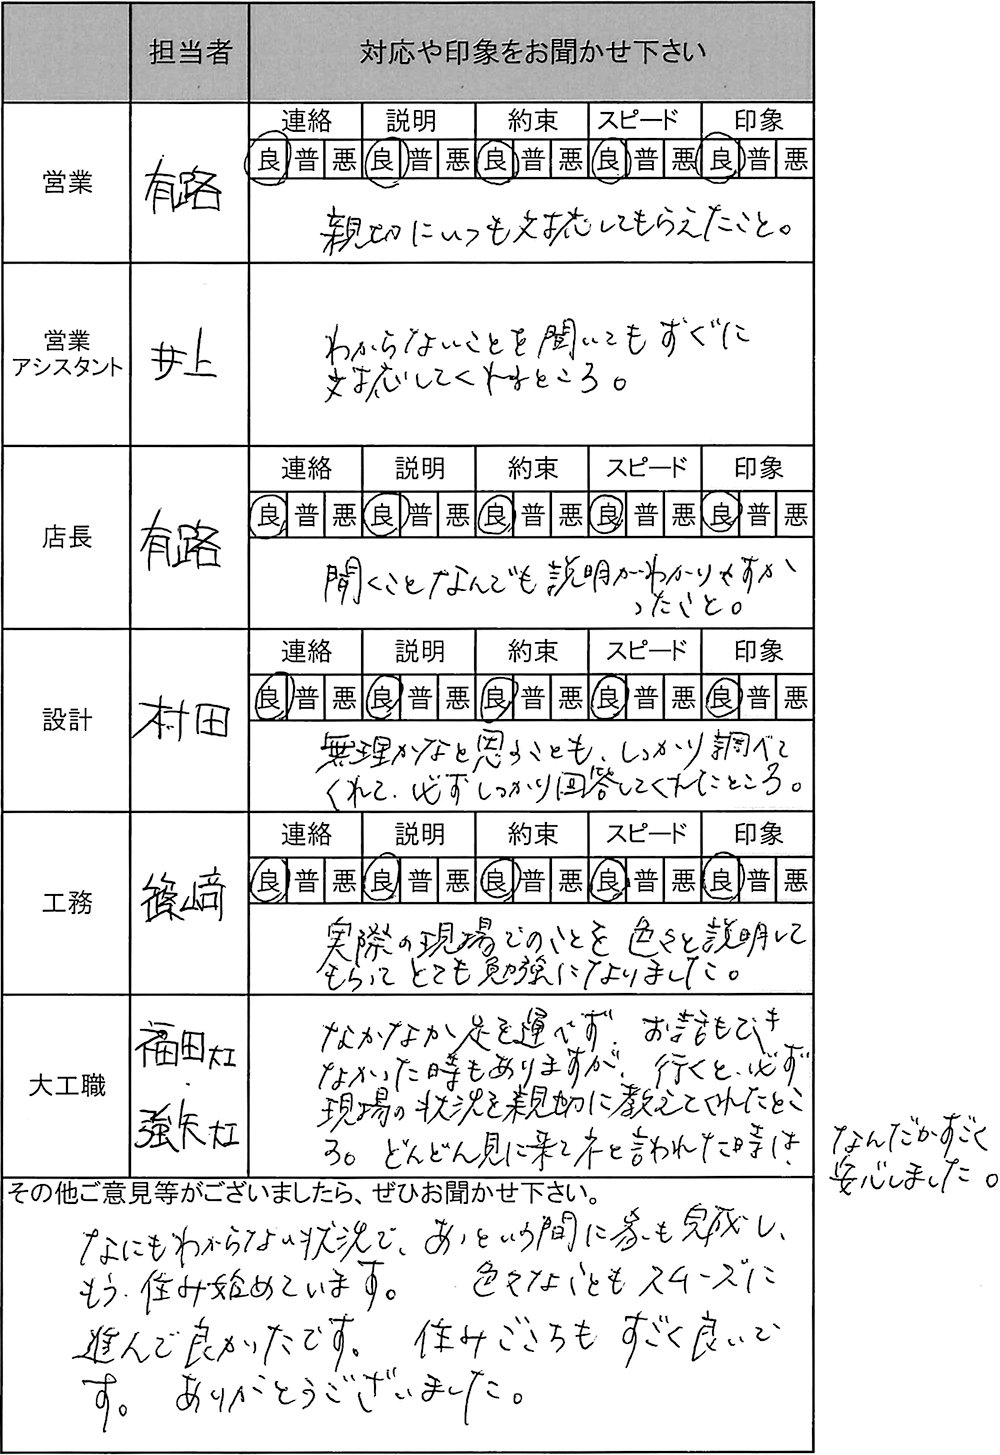 担当者 対応や印象をお聞かせ下さい
営業 有路
連絡 説明 約束 スピード 印象
良 普 悪 良 普 悪 良 普 悪 良 普 悪 良 普 悪
親切にいつも対応してもらえたこと。
営業
アシスタント 井上
わからないことを聞いてもすぐに
対応してくれるところ。
店長 有路
連絡 説明 約束 スピード 印象
良 普 悪 良 普 悪 良 普 悪 良 普 悪 良 普 悪
聞くことなんでも説明がわかりやすか
ったこと。
設計 村田
連絡 説明 約束 スピード 印象
良 普 悪 良 普 悪 良 普 悪 良 普 悪 良 普 悪
無理かなと思うことも、しっかり調べて
くれて、必ずしっかり回答してくれたところ。
工務 篠﨑
連絡 説明 約束 スピード 印象
良 普 悪 良 普 悪 良 普 悪 良 普 悪 良 普 悪
実際の現場でのことを色々と説明して
もらってとても勉強になりました。
大工職 福田大工
・
強矢大工
なかなか足を運べず、お話もでき
なかった時もありますが、行くと、必ず
現場の状況を親切に教えてくれたとこ
ろ。どんどん見に来てネと言われた時は、
なんだかすごく
安心しました。
その他ご意見等がございましたら、ぜひお聞かせ下さい。
なにもわからない状況で、あっという間に家も完成し、
もう、住み始めています。 色々なこともスムーズに
進んで良かったです。 住みごこちも すごく良いで
す。 ありがとうございました。